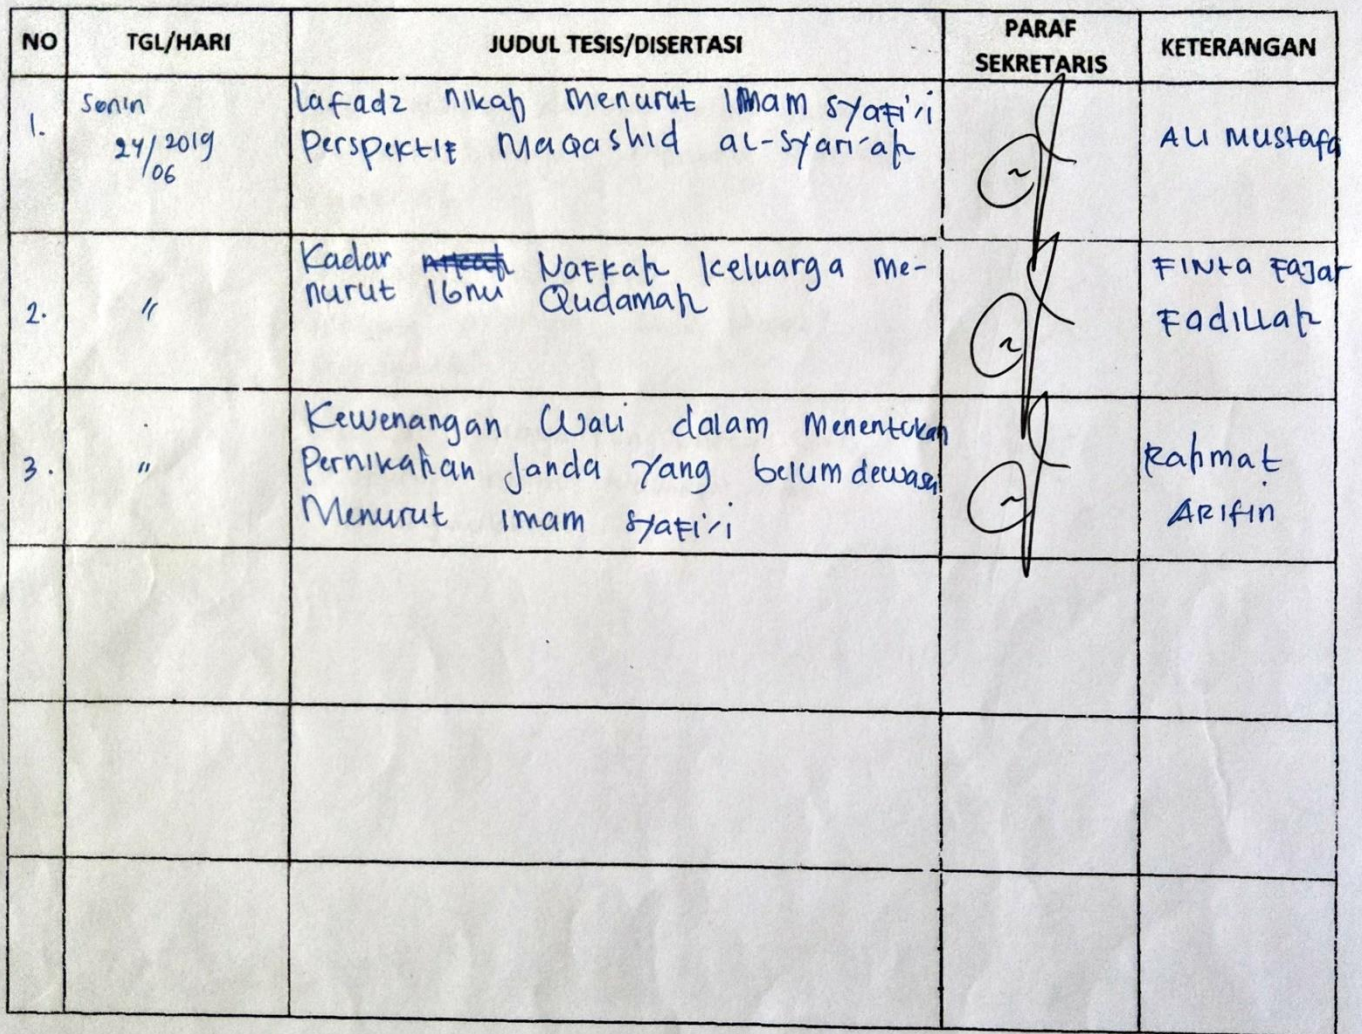 NO TGL/HARI JUDUL TESIS/DISERTASI PARAF SEKRETARIS KETERANGAN
1. Senin 24/06 2019
Lafadz nikah menurut Imam Syafi'i
Perspektif Maqashid al-Syari'ah
Ali Mustafa
2. "
Kadar Nafkah keluarga me-
nurut Ibnu Qudamah
Finta Fajar
Fadillah
3. "
Kewenangan Wali dalam Menentukan
Pernikahan Janda Yang belum dewasa
Menurut Imam Syafi'i
Rahmat
Arifin